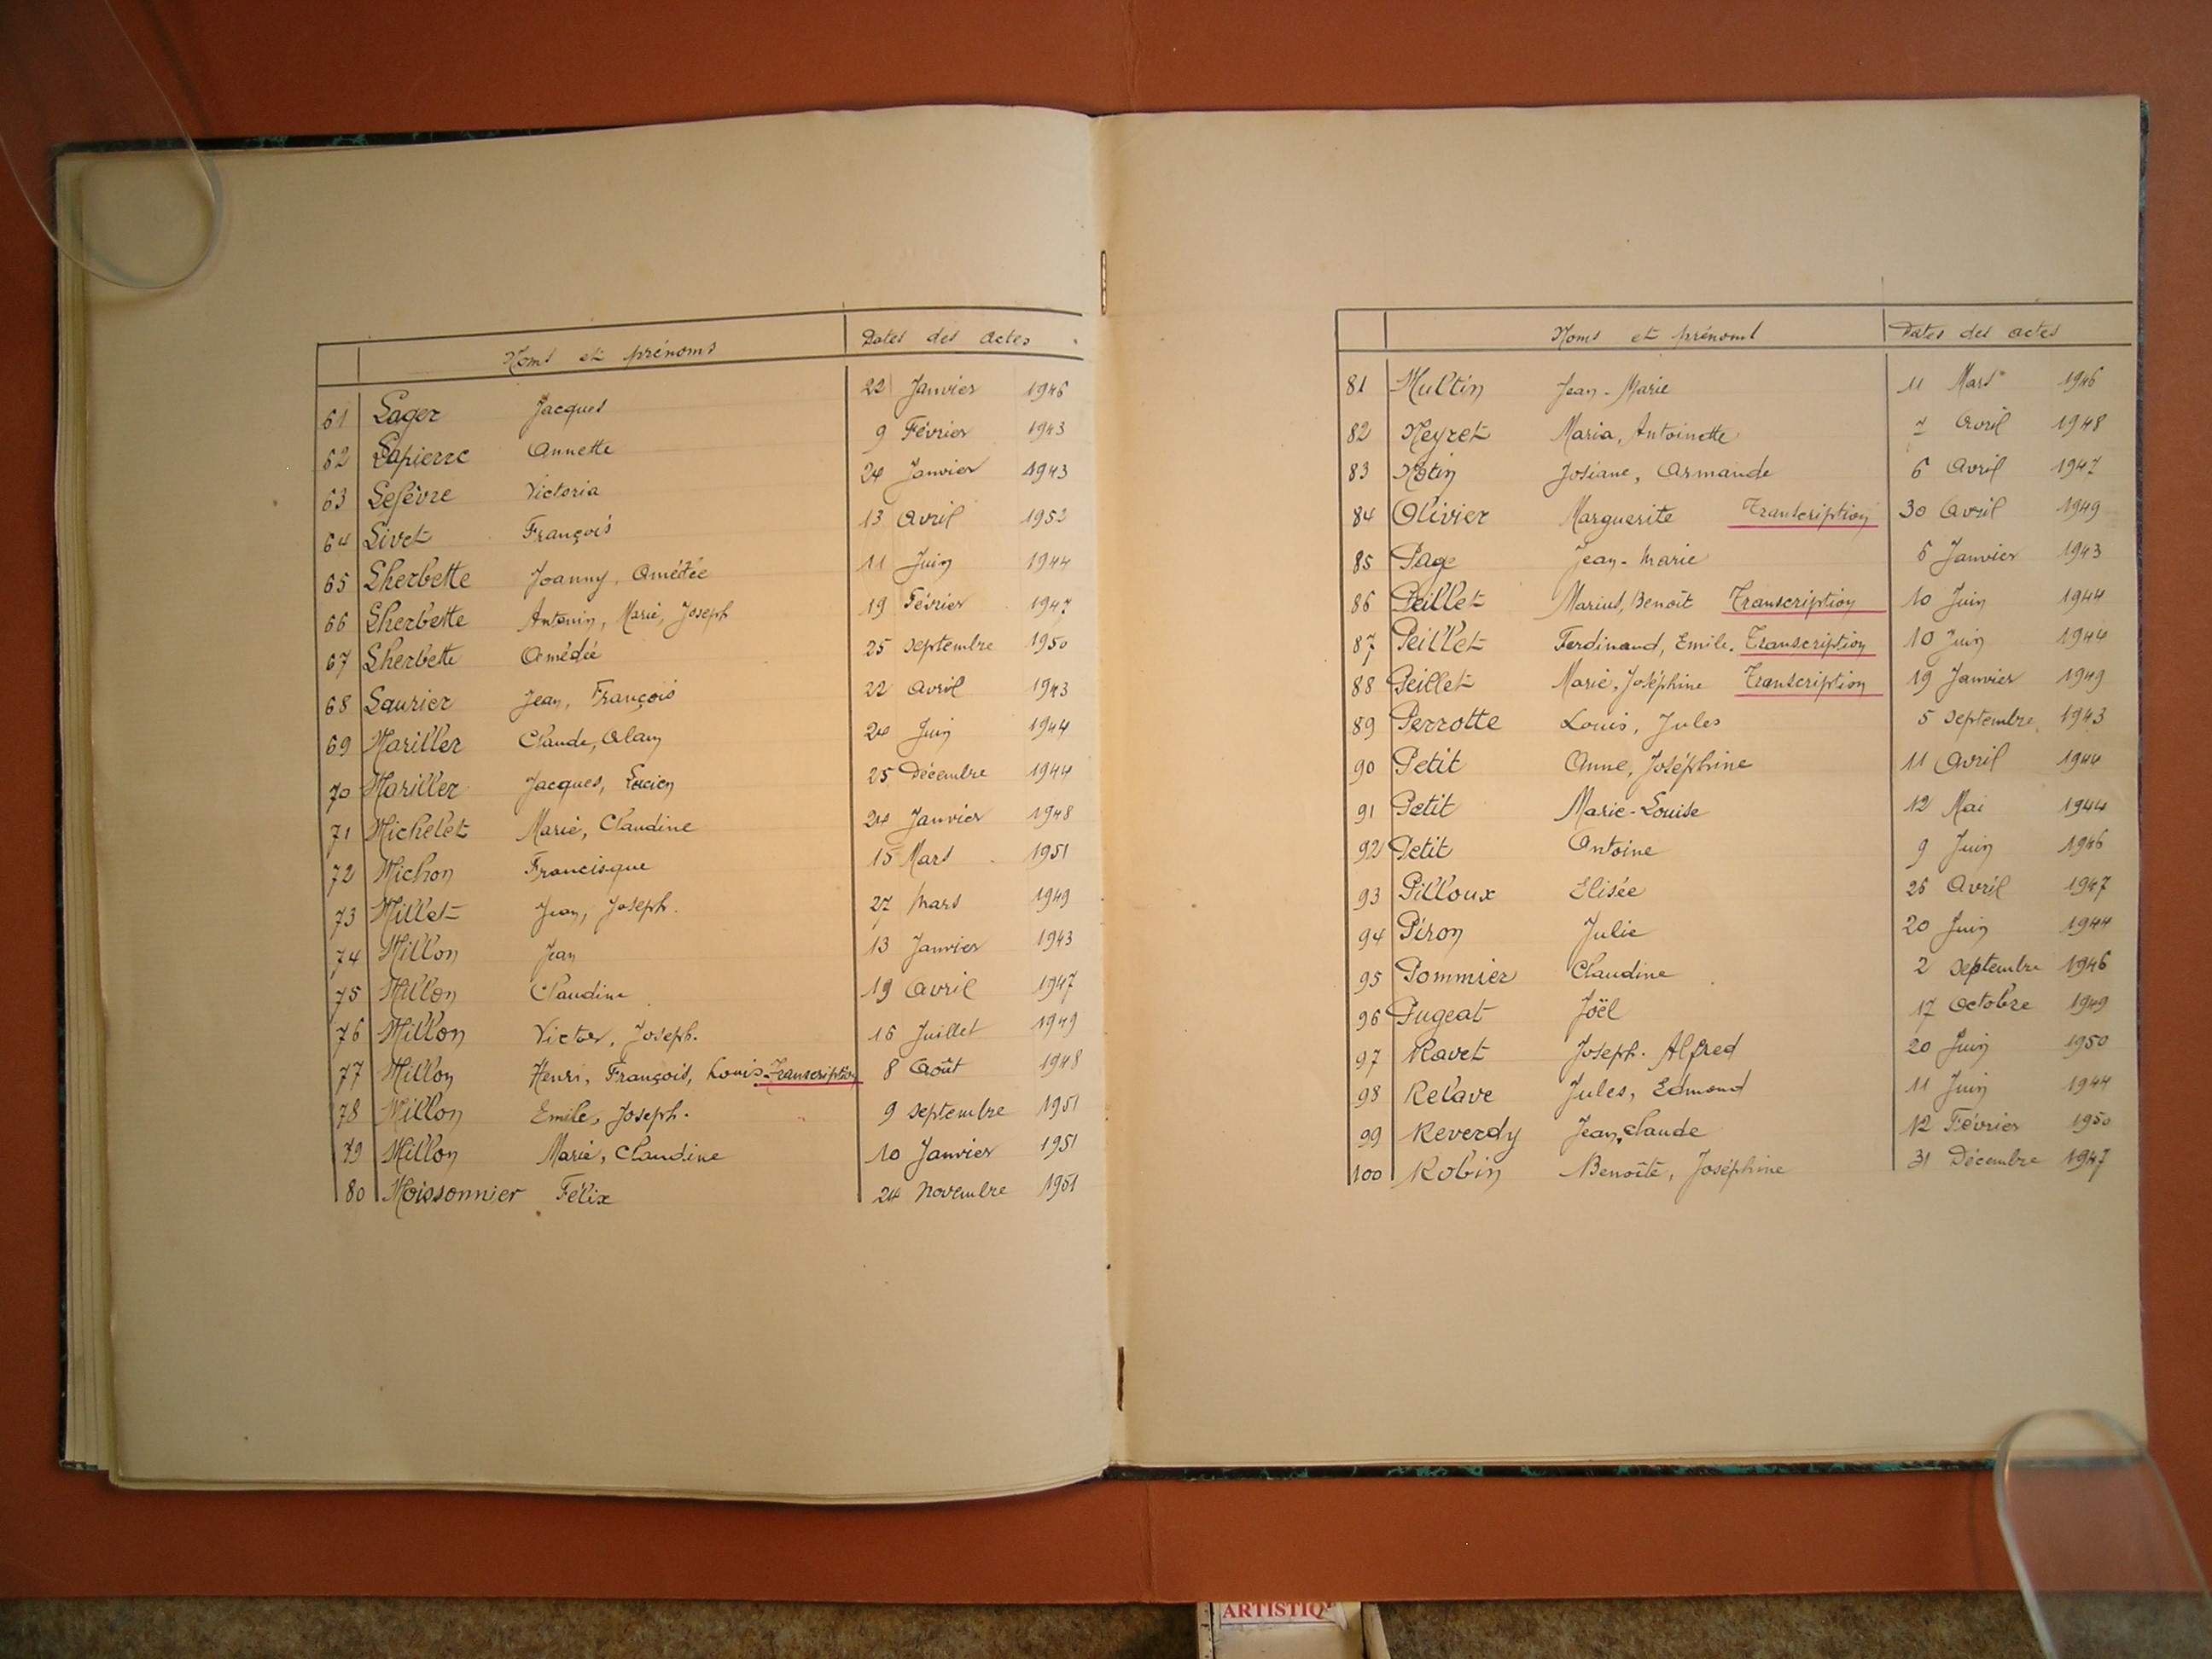 Noms et prénoms Dates des actes
61 Lager Jacques 22 Janvier 1946
62 Lapierre Annette 9 Février 1943
63 Lefèvre Victoria 24 Janvier 1943
64 Livet François 13 Avril 1952
65 Lherbette Joanny, Amédée 11 Juin 1944
66 Lherbette Antonin, Marie, Joseph 19 Février 1947
67 Lherbette Amédée 25 septembre 1950
68 Laurier Jean, François 22 Avril 1943
69 Mariller Claude, Alain 24 Juin 1944
70 Mariller Jacques, Lucien 25 Décembre 1944
71 Michelet Marie, Claudine 24 Janvier 1948
72 Michon Francisque 15 Mars 1951
73 Millet Jean, Joseph. 27 Mars 1949
74 Millon Jean 13 Janvier 1943
75 Millon Claudine 19 Avril 1947
76 Millon Victor, Joseph. 16 Juillet 1949
77 Millon Henri, François, Louis-Transcription 8 Août 1948
78 Millon Emile, Joseph. 9 septembre 1951
79 Millon Marie, Claudine 10 Janvier 1951
80 Moissonnier Félix 24 Novembre 1951
Noms et prénoms Dates des actes
81 Multin Jean-Marie 11 Mars 1946
82 Neyret Maria, Antoinette 7 Avril 1948
83 Notin Josiane, Armande 6 Avril 1947
84 Olivier Marguerite Transcription 30 Avril 1949
85 Page Jean-Marie 6 Janvier 1943
86 Peillet Marius, Benoît Transcription 10 Juin 1944
87 Peillet Ferdinand, Emile. Transcription 10 Juin 1944
88 Peillet Marie, Joséphine Transcription 19 Janvier 1949
89 Perrotte Louis, Jules 5 septembre 1943
90 Petit Anne, Joséphine 11 Avril 1944
91 Petit Marie-Louise 12 Mai 1944
92 Petit Antoine 9 Juin 1946
93 Pilloux Elisée 26 Avril 1947
94 Piron Julie 20 Juin 1944
95 Pommier Claudine 2 septembre 1946
96 Pugeat Joël 17 Octobre 1949
97 Ravet Joseph. Alfred 20 Juin 1950
98 Relave Jules, Edmond 11 Juin 1944
99 Reverdy Jean, Claude 12 Février 1950
100 Robin Benoîte, Joséphine 31 Décembre 1947
ARTISTIQ